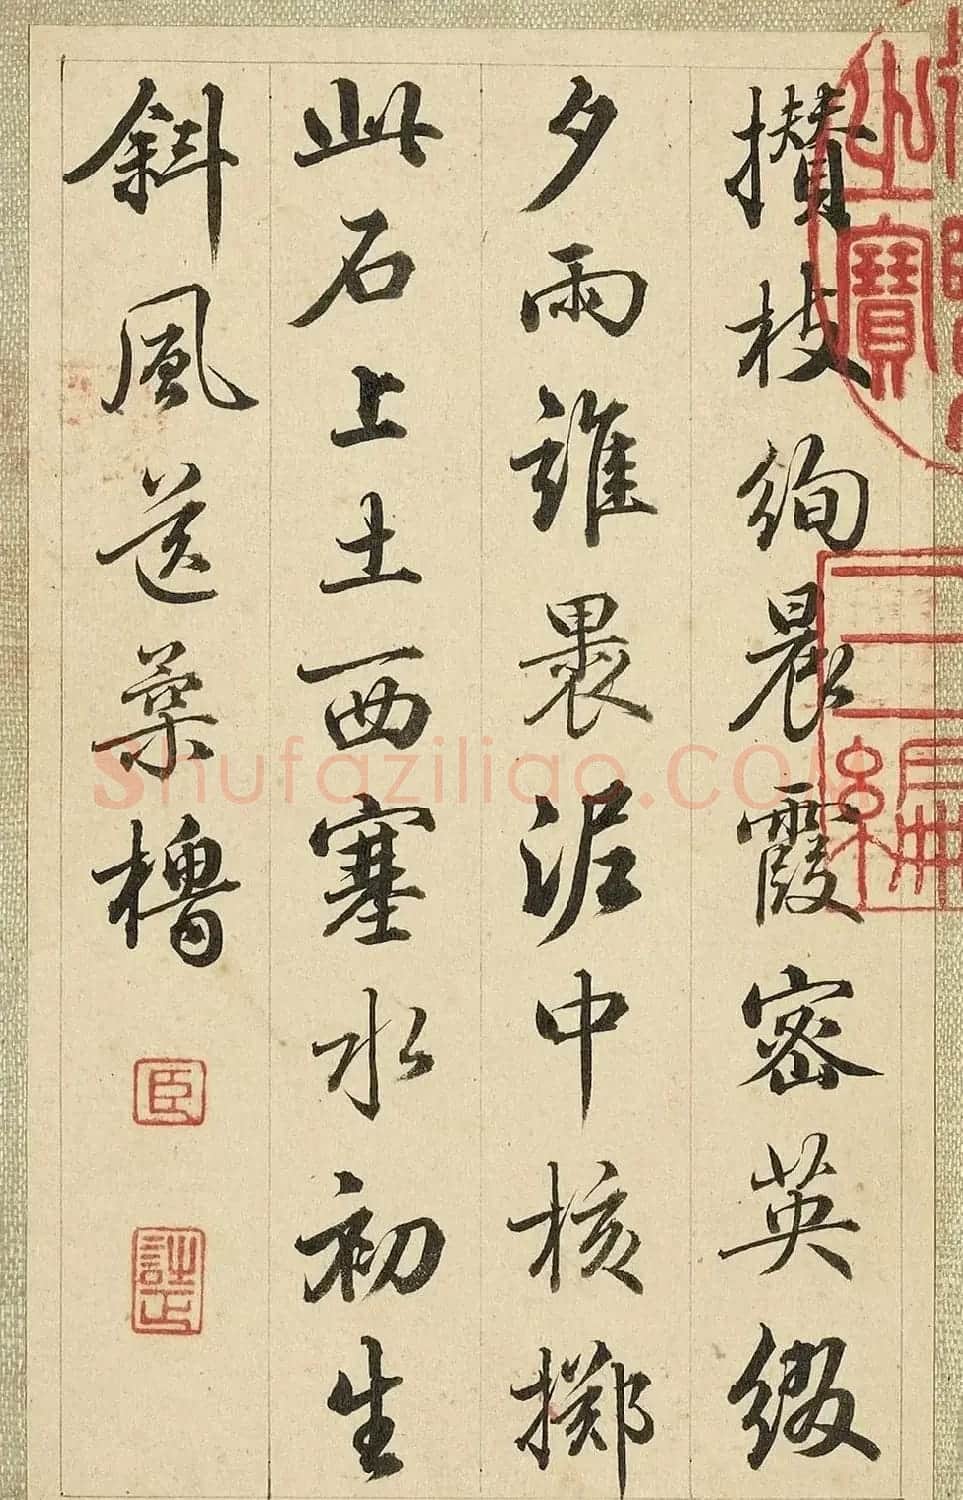 攅枝絢晨霞密英綴
夕雨誰畏泥中核擲
此石上土西塞水初生
斜風送蘂櫓
臣
詿
之寶
三編
shufaziliao.com